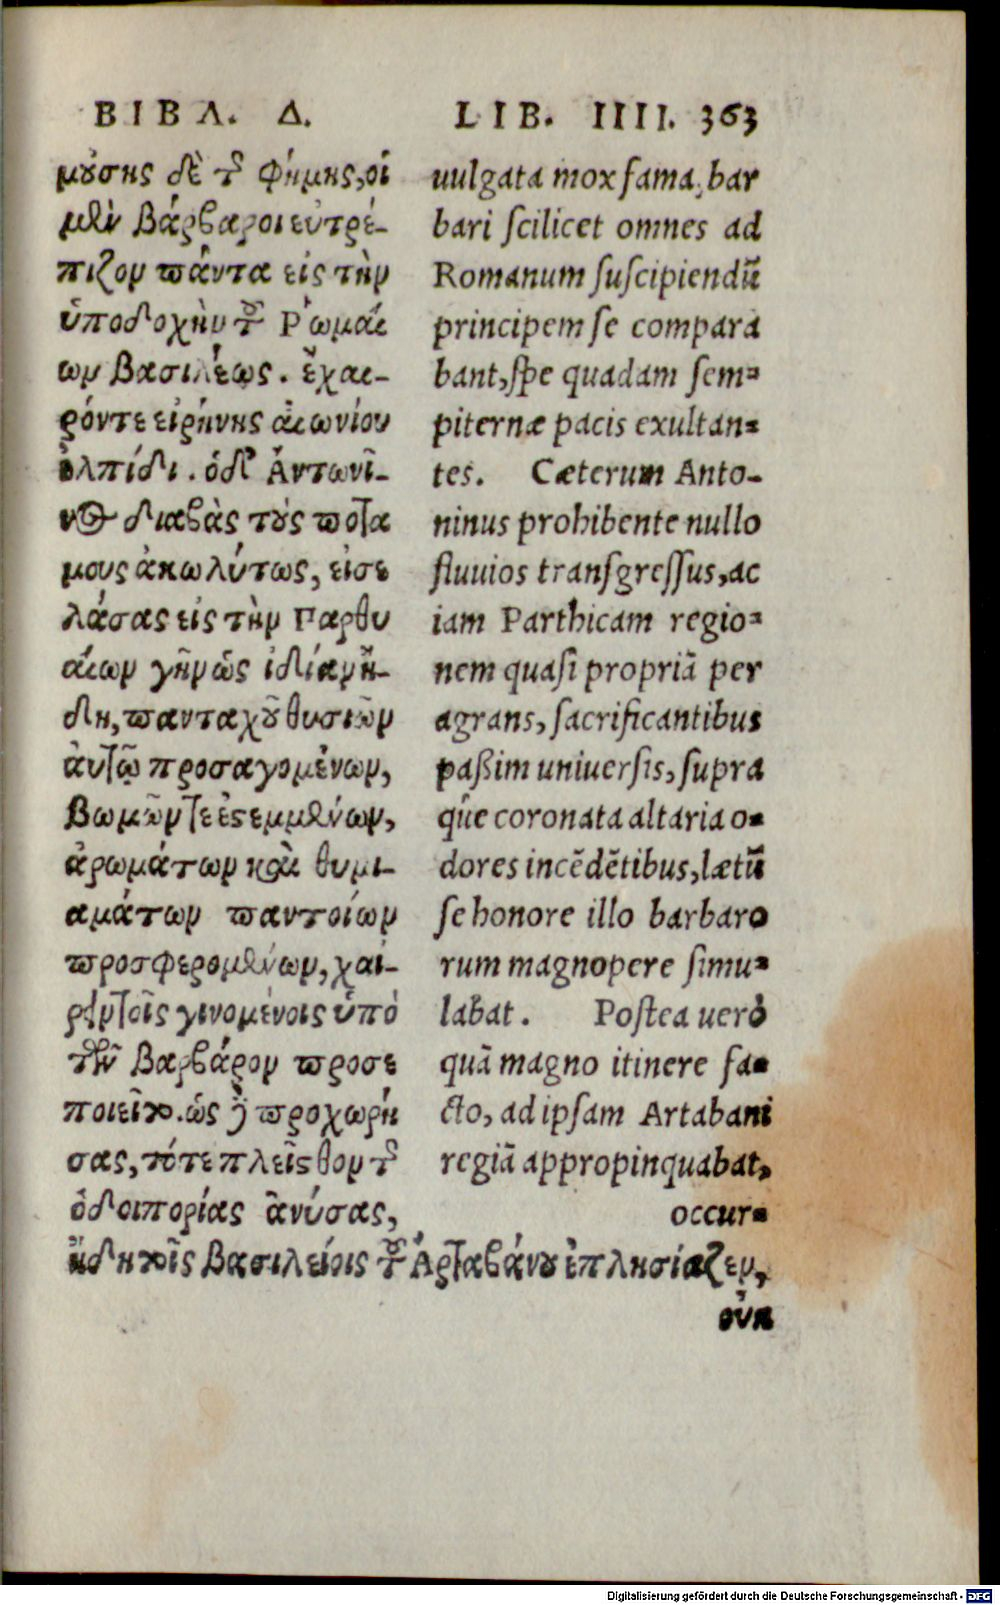 ΒΙΒΛ. Δ.
μούσης δὲ τῆς φήμης, οἱ
μὲν βάρβαροι εὐτρέ-
πιζον πάντα εἰς τὴν
ὑποδοχὴν τοῦ Ῥωμαί
ων βασιλέως. ἔχαι-
ρόν τε εἰρήνης αἰωνίου
ἐλπίδι. ὁ δὲ Ἀντωνῖ-
νος διαβὰς τοὺς ποτα
μους ἀκωλύτως, εἰσε
λάσας εἰς τὴν Παρθυ
αίων γῆν ὡς ἰδίαν ἤ-
δη, πανταχοῦ θυσιῶν
αὐτῷ προσαγομένων,
βωμῶν τε ἐστεμμένων,
ἀρωμάτων καὶ θυμι-
αμάτων παντοίων
προσφερομένων, χαί-
ρειν τοῖς γινομένοις ὑπὸ
τῶν βαρβάρον προσε
ποιεῖτο. ὡς δὲ προχωρή
σας, τότε πλεῖσθον τῆς
ὁδοιπορίας ἀνύσας,
ἤδη τοῖς βασιλείοις τοῦ Ἀρταβάνου ἐπλησίαζεν,
οὐκ
LIB. IIII. 363
uulgata mox fama, bar
bari ſcilicet omnes ad
Romanum ſuſcipiendũ
principem ſe compara
bant, ſpe quadam ſem-
piternæ pacis exultan-
tes. Cæterum Anto-
ninus prohibente nullo
fluuios tranſgreſſus, ac
iam Parthicam regio-
nem quaſi propriã per
agrans, ſacrificantibus
paßim uniuerſis, ſupra
q́ue coronata altaria o-
dores incẽdẽtibus, lætũ
ſe honore illo barbaro
rum magnopere ſimu-
labat. Poſtea uerò
quã magno itinere fa-
cto, ad ipſam Artabani
regiã appropinquabat,
occur-
Digitalisierung gefördert durch die Deutsche Forschungsgemeinschaft - DFG